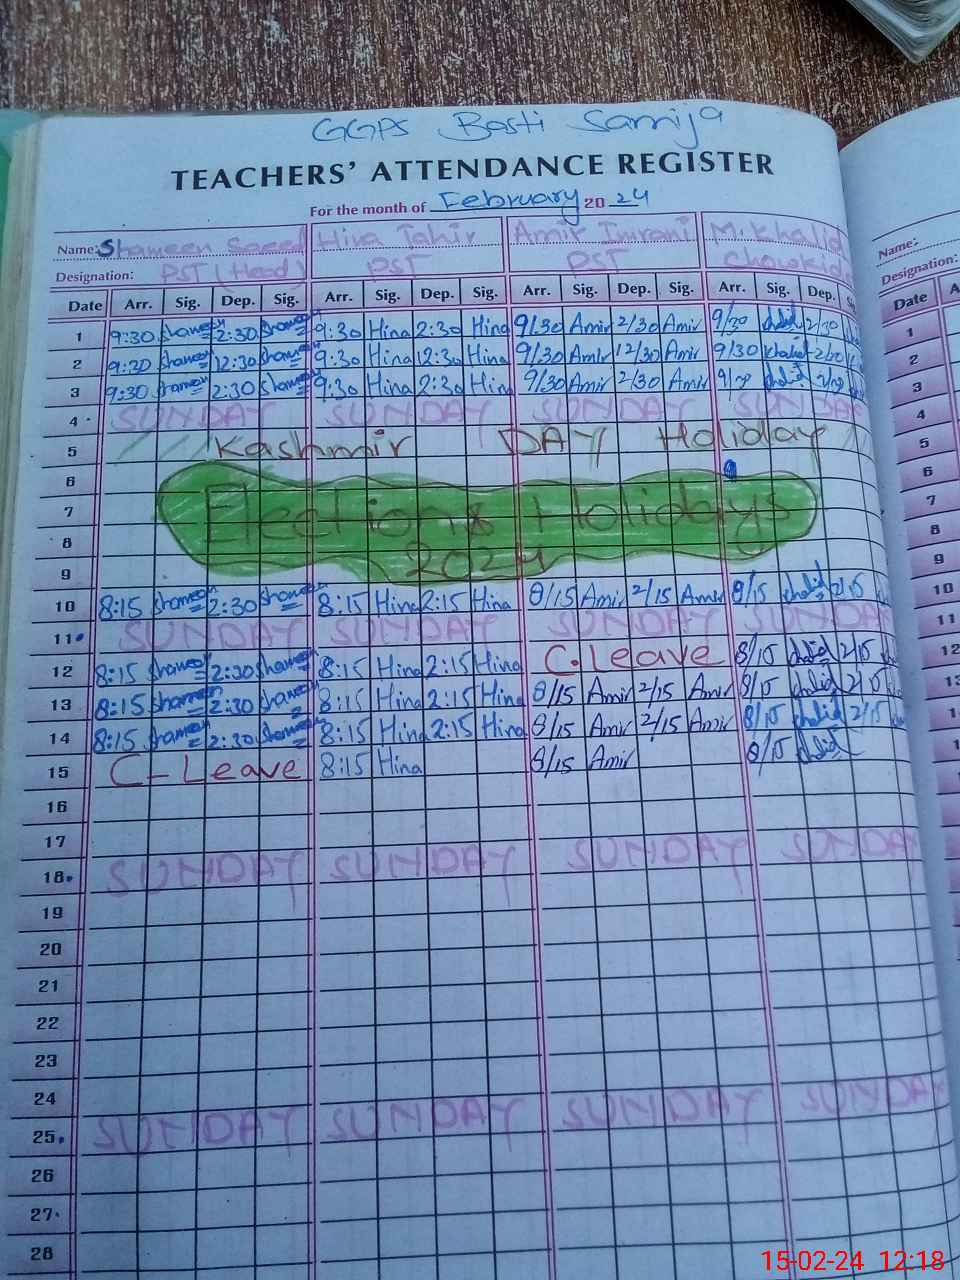 GGPS Basti Samija
TEACHERS' ATTENDANCE REGISTER
For the month of February 2024
Name: Shameen Saeed Hira Tahir Amir Imran M. Khalid Name:
Designation: PST (Head) PST PST Chowkida Designation:
Date Arr. Sig. Dep. Sig. Arr. Sig. Dep. Sig. Arr. Sig. Dep. Sig. Arr. Sig. Dep. Date
1 9:30 Shameen 2:30 Shameen 9:30 Hina 2:30 Hina 9/30 Amir 2/30 Amir 9/30 Khalid 2/30 1
2 9:30 Shameen 12:30 Shameen 9:30 Hina 12:30 Hina 9/30 Amir 12/30 Amir 9/30 Khalid 2
3 9:30 Shameen 2:30 Shameen 9:30 Hina 2:30 Hina 9/30 Amir 2/30 Amir Khalid 3
4 SUNDAY SUNDAY SUNDAY SUNDAY 4
5 Kashmir DAY Holiday 5
6 6
7 Elections Holidays 7
8 8
9 2024 9
10 8:15 Shameen 2:30 Shameen 8:15 Hina 2:15 Hina 8/15 Amir 2/15 Amir 8/15 Khalid 2/15 10
11 SUNDAY SUNDAY SUNDAY SUNDAY 11
12 8:15 Shameen 2:30 Shameen 8:15 Hina 2:15 Hina C. Leave 8/15 Khalid 2/15 12
13 8:15 Shameen 2:30 Shameen 8:15 Hina 2:15 Hina 8/15 Amir 2/15 Amir 8/15 Khalid 2/15 13
14 8:15 Shameen 2:30 Shameen 8:15 Hina 2:15 Hina 8/15 Amir 2/15 Amir 8/15 Khalid 2/15
15 C-Leave 8:15 Hina 8/15 Amir 8/15 Khalid
16
17
18 SUNDAY SUNDAY SUNDAY SUNDAY
19
20
21
22
23
24
25 SUNDAY SUNDAY SUNDAY SUNDAY
26
27
28
15-02-24 12:18